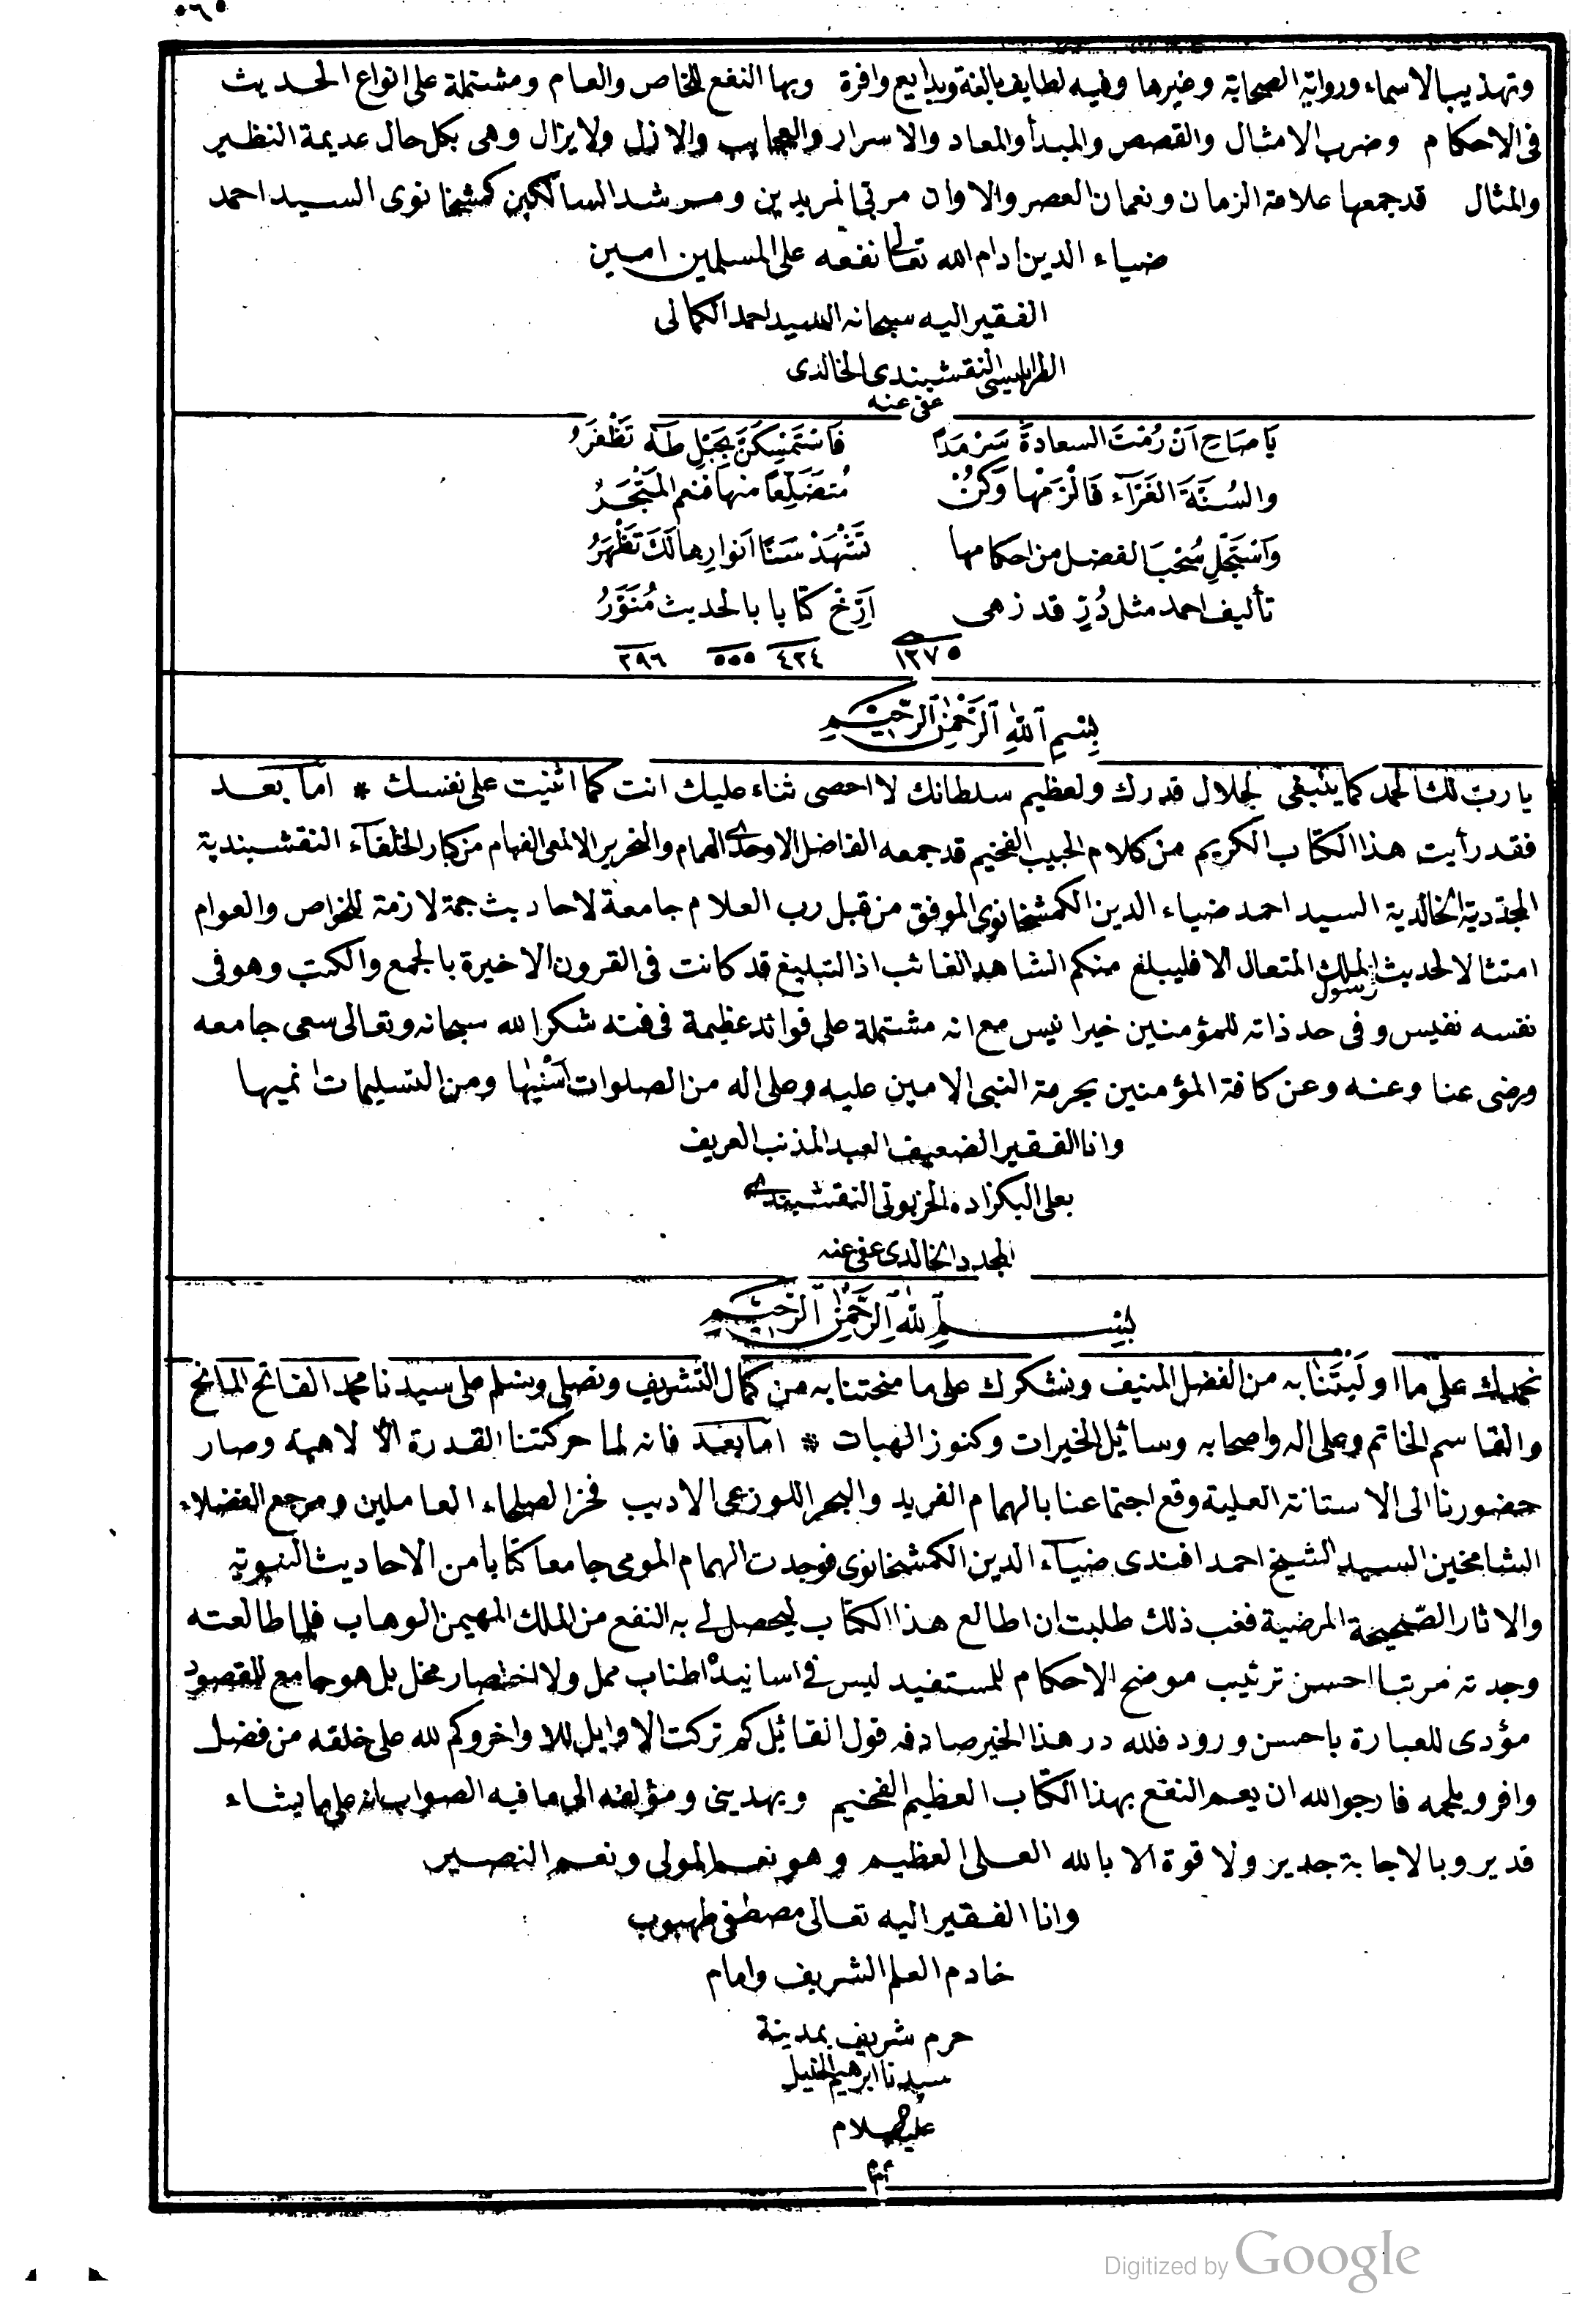 ٥٦٥
وتهذيب الاسماء ورواية الصحابة وغيرها وفيه لطايف بالغة وبدايع وافرة وبها النفع للخاص والعام ومشتملة على انواع الحديث
فى الاحكام وضرب الامثال والقصص والمبدأ والمعاد والاسرار والعجايب والازل ولايزال وهى بكل حال عديمة النظير
والمثال قد جمعها علامة الزمان ونعمان العصر والاوان مربى المريدين ومرشد السالكين كمشخانوى السيد احمد
ضياء الدين ادام الله تعالى نفعه على المسلمين امين
الفقير اليه سبحانه السيد احمد الكمالى
الطرابلسى النقشبندى الخالدى
عفى عنه
يَا صَاحِ اَنْ رُمْتَ السعادةَ سَرْمَدًا فَاسْتَمْسِكَنَّ بِحَبْلِ طٰهٰ تَظْفَرُ
والسُنَّةَ الغَرَّآءَ فَالْزَمْهَا وَكُنْ مُتضَلِّعًا منها فنعم المَتْجَرُ
وَاسْتَجْلِ سُحْبَ الفضل من احكامها تَشْهَدْ سَنَا انوارِها لَكَ تَظْهَرُ
تأليف احمد مثل دُرٍّ قد زهى اَرِّخْ كتابا بالحديث مُنَوَّرُ
١٢٧٥ ٤٢٤ ٥٥٥ ٢٩٦
بِسْمِ اللّٰهِ الرَّحْمٰنِ الرَّحِيمِ
يا رب لك الحمد كما ينبغى لجلال قدرك ولعظيم سلطانك لا احصى ثناء عليك انت كما اثنيت على نفسك * اما بعد
فقد رأيت هذا الكتاب الكريم من كلام الحبيب الفخيم قد جمعه الفاضل الاوحدى الهمام والنحرير الالمعى الفهام من كبار الخلفآء النقشبندية
المجددية الخالدية السيد احمد ضياء الدين الكمشخانوى الموفق من قبل رب العلام جامعة لاحاديث جمة لازمة للخواص والعوام
امتثالا لحديث رسول الملك المتعال الا فليبلغ منكم الشاهد الغائب اذ التبليغ قد كانت فى القرون الاخيرة بالجمع والكتب وهو فى
نفسه نفيس وفى حد ذاته للمؤمنين خير انيس مع انه مشتملة على فوائد عظيمة فى فنه شكر الله سبحانه وتعالى سعى جامعه
ورضى عنا وعنه وعن كافة المؤمنين بحرمة النبى الامين عليه وعلى اله من الصلوات اَسْنٰيها ومن التسليمات انميها
وانا الفقير الضعيف العبد المذنب العريف
بعلى البكزاده الخربوتى النقشبندى
المجدد الخالدى عفى عنه
بِسْمِ اللّٰهِ الرَّحْمٰنِ الرَّحِيمِ
نحمدك على ما اولَيْتَنَا به من الفضل المنيف ونشكرك على ما منحتنا به من كمال التشريف ونصلى ونسلم على سيدنا محمد الفاتح المانح
والقاسم الخاتم وعلى اله واصحابه وسائل الخيرات وكنوز الهبات * اما بعد فانه لما حركتنا القدرة الالاهية وصار
حضورنا الى الاستانة العلية وقع اجتماعنا بالهمام الفريد والبحر اللوزعى الاديب فخر الصلحاء العاملين ومرجع الفضلاء
الشامخين السيد الشيخ احمد افندى ضيآء الدين الكمشخانوى فوجدت الهمام المومى جامعا كتابا من الاحاديث النبوية
والاثار الصحيحة المرضية فغب ذلك طلبت ان اطالع هذا الكتاب ليحصل لى به النفع من الملك المهيمن الوهاب فلما طالعته
وجدته مرتبا احسن ترتيب موضح الاحكام للمستفيد ليس فى اسانيده اطناب ممل ولا اختصار مخل بل هو جامع للمقصود
مؤدى للعبارة باحسن ورود فلله در هذا الخير صادفه قول القائل كم تركت الاوايل للاواخر وكم لله على خلقه من فضل
وافر فارجو الله ان يعم النفع بهذا الكتاب العظيم الفخيم ويهدينى ومؤلفه الى ما فيه الصواب انه على ما يشاء
قدير وبالاجابة جدير ولا قوة الا بالله العلى العظيم وهو نعم المولى ونعم النصير
وانا الفقير اليه تعالى مصطفى طهبوب
خادم العلم الشريف وامام
حرم شريف بمدينة
سيدنا ابرهيم الخليل
عليه السلام
Digitized by Google